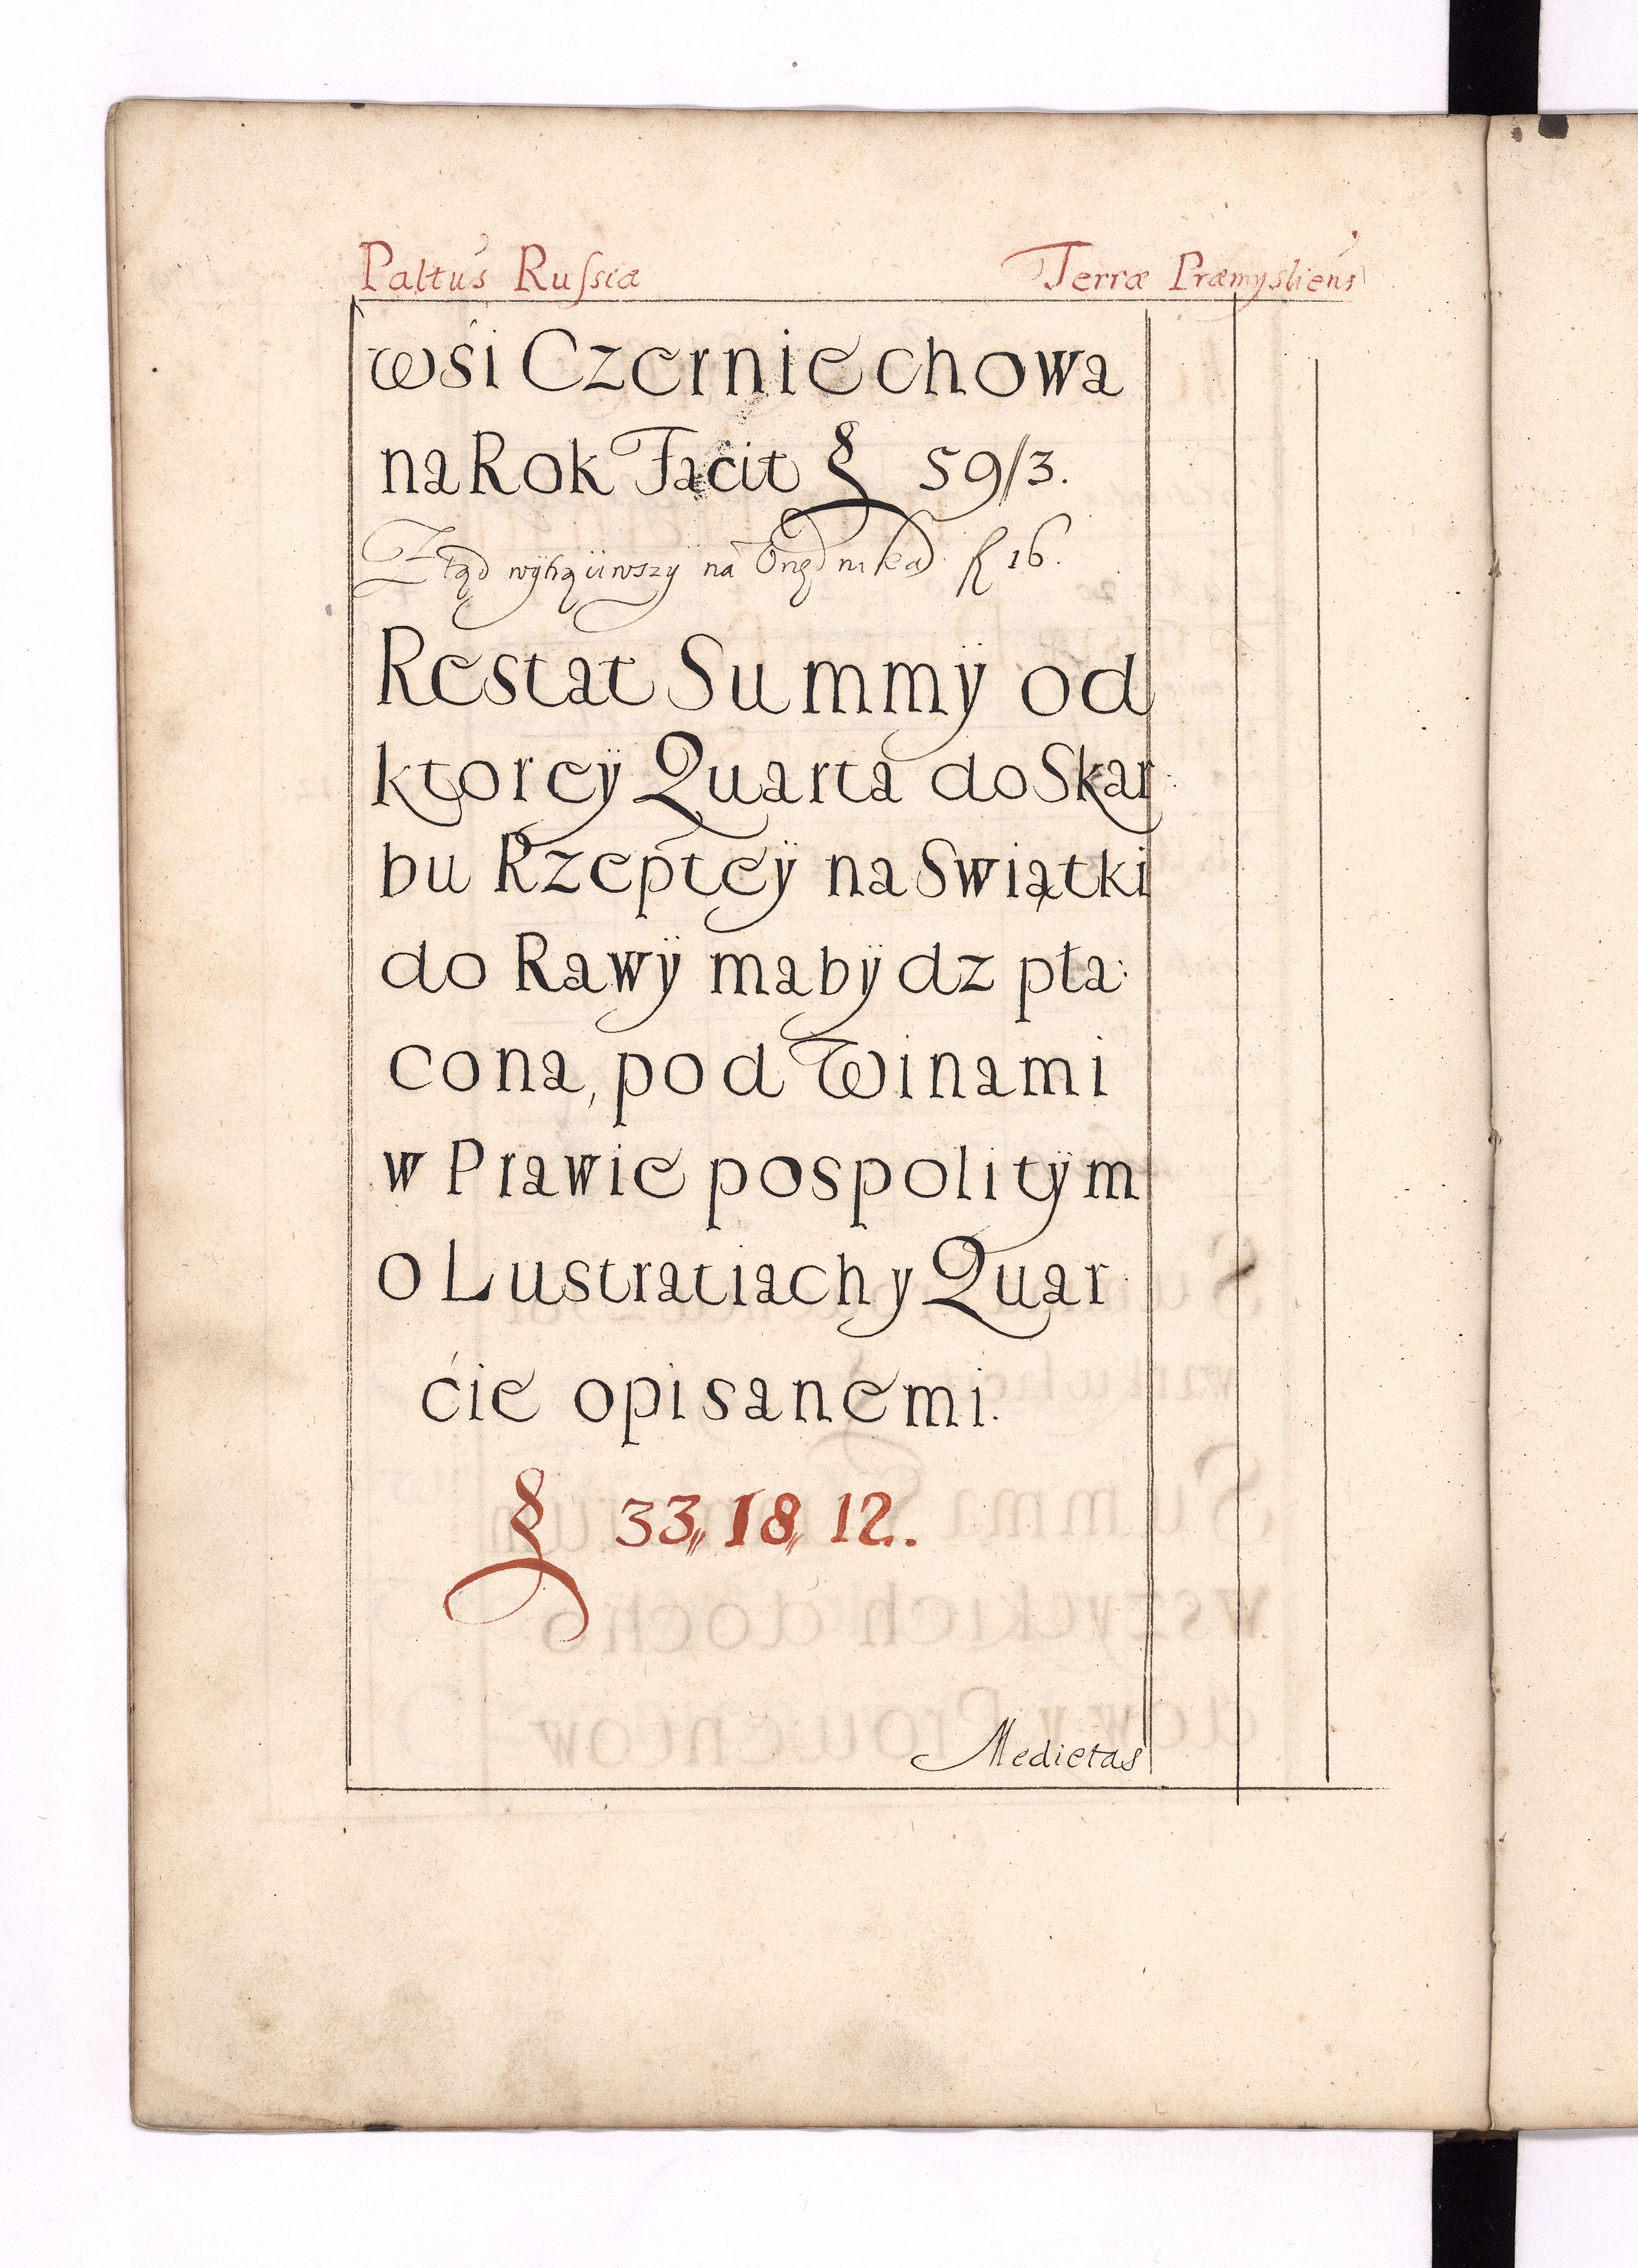 Paltus Russiæ Terræ Præmysliens
wśi Czerniechowa
na Rok Facit § 59//3.
Ztąd wÿtrąciwszÿ na Vrzędnika R 16.
Restat Summÿ od
ktoreÿ Quarta do Skar:
bu Rzepteÿ na Swiątki
do Rawÿ ma bÿdz pła:
cona, pod Winami
w Prawie pospolitÿm
o Lustratiach y Quar:
ćie opisanemi.
§ 33,, 18,, 12.
Medietas